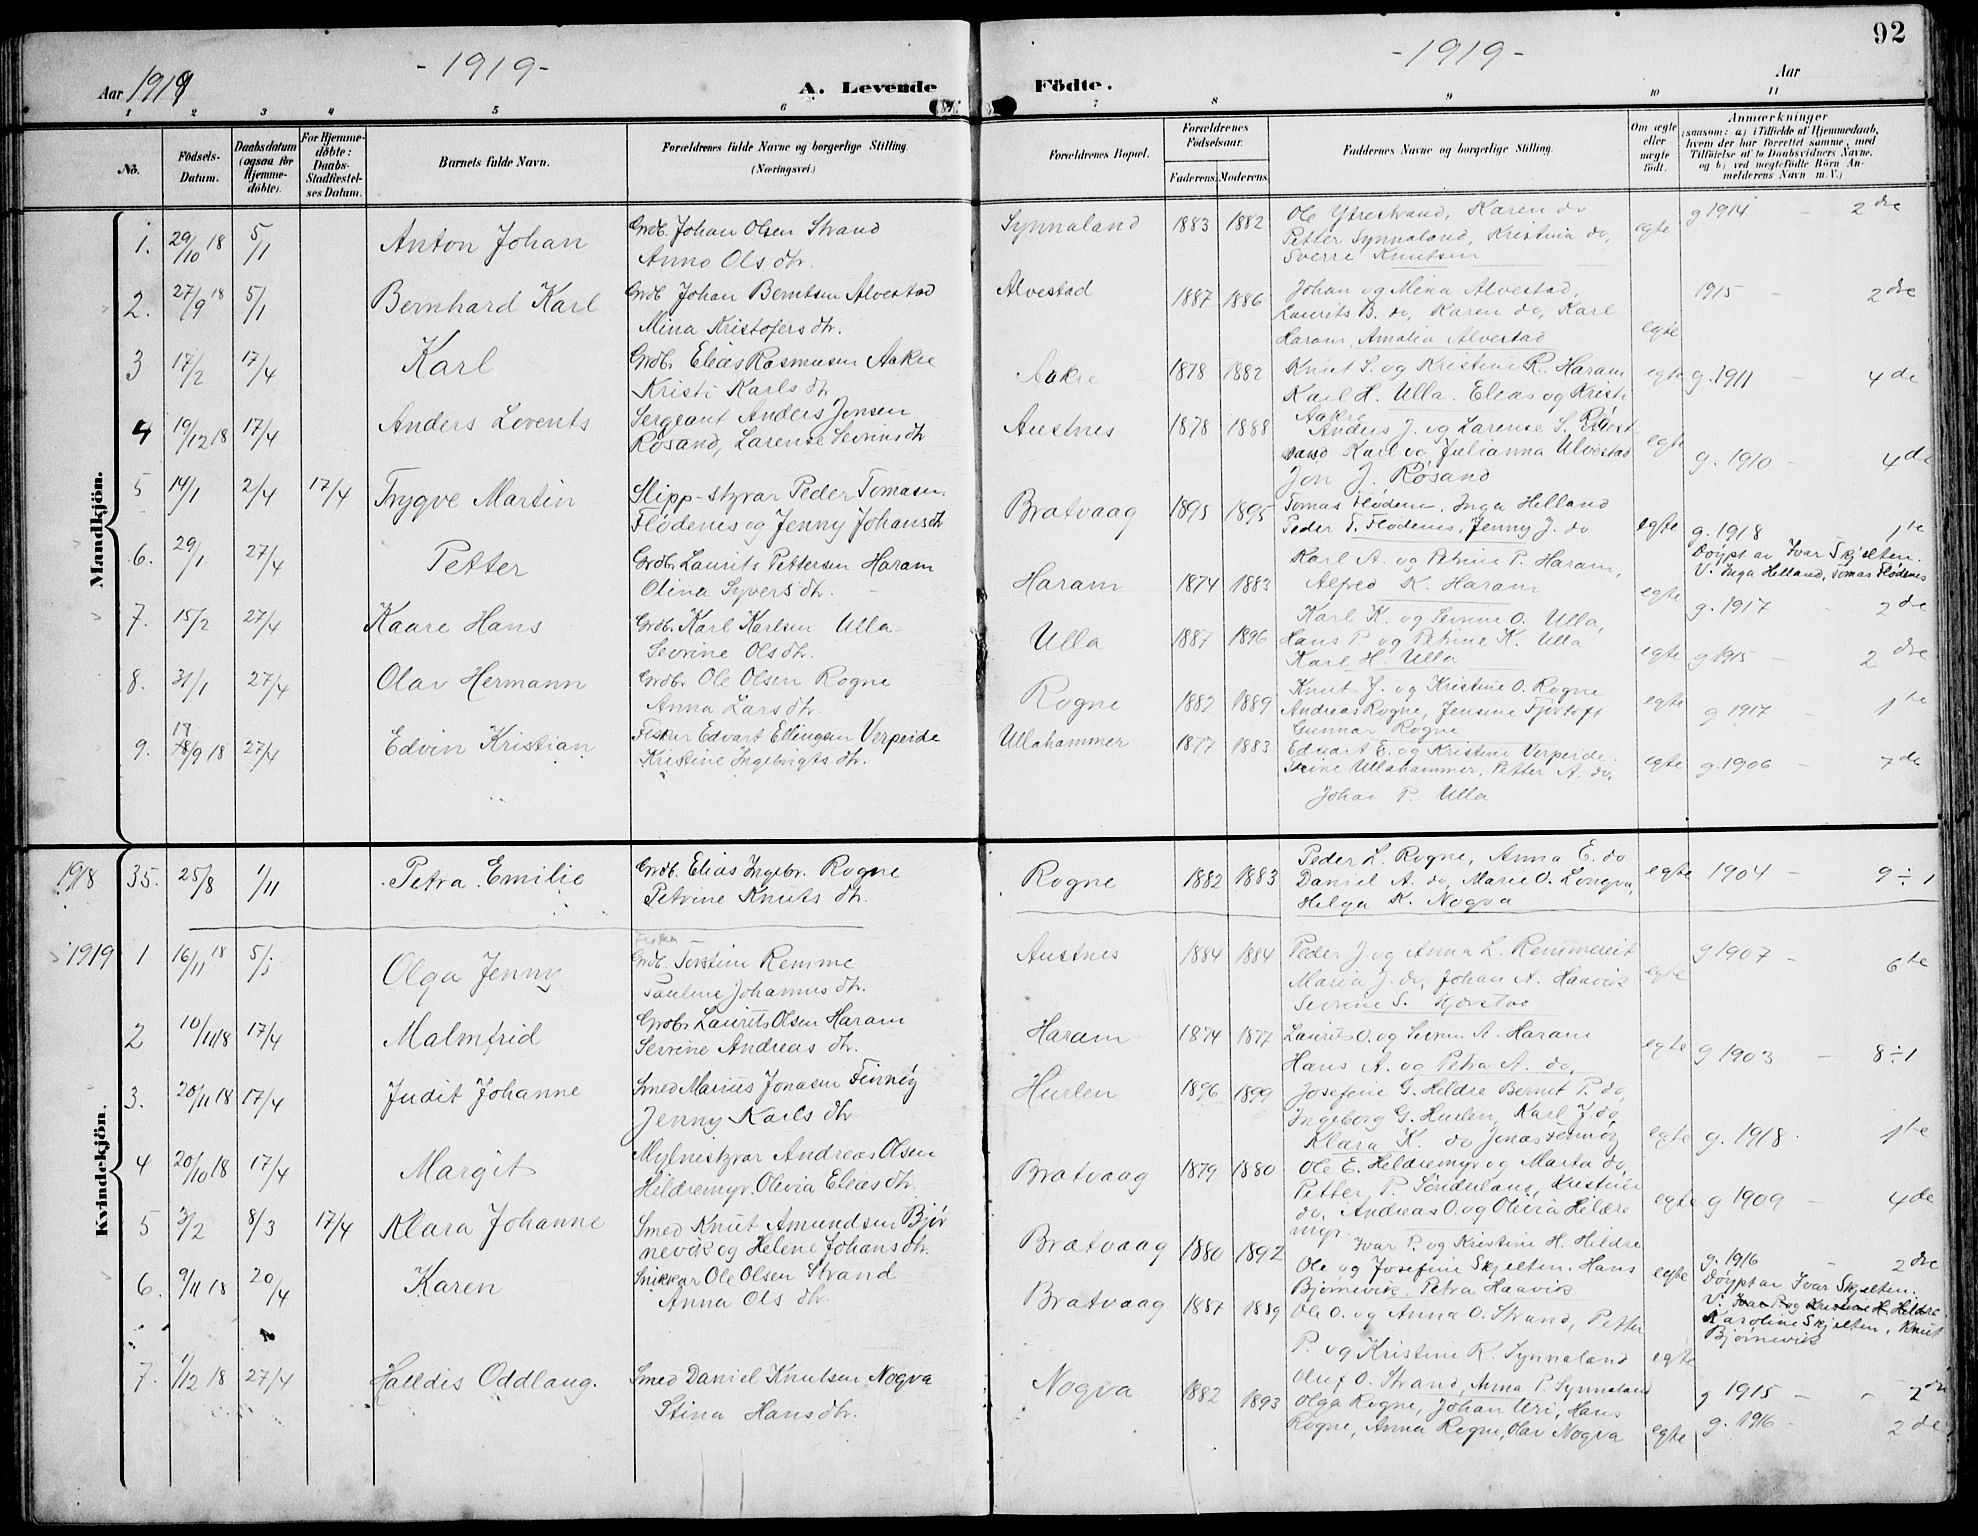 92
- 1919 -
- 1919 -
Aar 1919
A. Levende
Fødte.
Aar
1 2 3 4 5 6 7 8 9 10 11
No.
Födsels-Datum.
Daabsdatum (ogsaa för Hjemme-döbte).
For Hjemme-döbte: Daabs-Stadfæstel-ses Datum.
Barnets fulde Navn.
Forældrenes fulde Navne og borgerlige Stilling.
(Næringsvei.)
Forældrenes Bopæl.
Forældrenes Födselsaar.
Faderens. Moderens.
Faddernes Navne og borgerlige Stilling.
Om ægte eller uægte födt.
Anmærkninger
(saasom: a) i Tilfælde af Hjemmedaab,
hvem der har forrettet samme, med
Tilföielse af to Daabsvidners Navne,
og b) ved uægtefödte Börn An-
melderens Navn m. V.)
Mandkjön.
1. 29/10 18 5/1 Anton Johan
Grdb. Johan Olsen Strand
Anna Ols dtr.
Synnaland 1883 1882
Ole Ytrestrand, Karen do
Petter Synnaland, Kristina do,
Sverre Knutsen
egte g 1914 - 2dre
2. 27/9 18 5/1 Bernhard Karl
Grdb Johan Berntsen Alvestad
Mina Kristofers dtr.
Alvestad 1887 1886
Johan og Mina Alvestad,
Laurits B. do, Karen do, Karl
Haram, Amalia Alvestad
egte 1915 - 2dre
3 17/2 17/4 Karl
Grdb. Elias Rasmusen Aakre
Kristi Karls dtr
Aakre 1878 1882
Knut S. og Kristine R. Haram
Karl H. Ulla. Elias og Kristi
Aakre
egte g. 1911 - 4de
4 19/12 18 17/4 Anders Lovents
Sergeant Anders Jonsen
Røsand, Larense Sevrins dtr
Austnes 1878 1888
Anders J. og Larense S. Rø
sand Karl og Julianna Ulvestad
Jon J. Røsand
egte g. 1910 - 4de
5 14/1 2/4 17/4 Trygve Martin
Slipp-styrar Peder Tomasen
Flødenes og Jenny Johans dtr
Bratvaag 1895 1895
Tomas Flødene, Inga Helland
Peder T. Flødenes, Jenny J. do
egte g. 1918 1te
Døypt av Ivar Skjelten.
V. Inga Helland, Tomas Flødenes
6. 29/1 27/4 Petter
Grdb. Laurits Pettersen Haram
Olina Syvers dtr. -
Haram 1874 1883
Karl A. og Petrine P. Haram,
Alfred K. Haram
egte g. 1917 - 2dre
7. 15/2 27/4 Kaare Hans
Grdb. Karl Karlsen Ulla
Sevrine Ols dtr.
Ulla 1887 1896
Karl K. og Sevrine O. Ulla,
Hans P. og Petrine K. Ulla
Karl H. Ulla
egte g 1915 - 2dre
8. 31/1 27/4 Olav Hermann
Grdbr Ole Olsen Rogne
Anna Lars dtr.
Rogne 1882 1889
Knut J. og Kristine O. Rogne
Andreas Rogne, Jensine Fjørtoft
Gunnar Rogne
egte g 1917 - 1te
9. 17/9 18 27/4 Edvin Kristian
Fisker Edvart Ellingsen Verpeide
Kristine Ingebrigts dtr.
Ullahammer 1877 1883
Edvart E. og Kristine Verpeide.
Trine Ullahammer, Petter A. do,
Johan P. Ulla
egte g. 1906 - 7de
Kvindekjön.
1918 35. 25/8 1/11 Petra Emilie
Grdb. Elias Ingebr. Rogne
Petrine Knuts dtr.
Rogne 1882 1883
Peder L. Rogne, Anna E. do
Daniel A. do, Marie O. Longva,
Helga K. Nogva
egte 1904 - 9 ÷ 1
1919 1 16/11 18 5/1 Olga Jenny
Grdb. Torstein Remme
Pauline Johannes dtr.
Austnes 1884 1884
Peder J og Anna L. Remmereit
Maria J. do, Johan A. Haavik
Sevrine S. Kjerstad
egte g 1907 - 6te
2 10/11 18 17/4 Malmfrid
Grdbr Laurits Olsen Haram
Sevrine Andreas dtr.
Haram 1874 1877
Laurits O. og Sevrine A. Haram
Hans A. og Petra A. do,
egte g 1903 - 8÷1
3. 20/11 18 17/4 Judit Johanne
Smed Marius Jonasen Finnøy
Jenny Karls dtr
Hurlen 1896 1899
Josefine G. Hildre Bernt P. do,
Ingeborg G. Hurlen, Karl J. do,
Klara K. do Jonas Finnøy
egte g. 1918. 1te
4 20/10 18 17/4 Margit
Mylnestyrar Andreas Olsen
Hildremyr. Olevia Elias dtr.
Bratvaag 1879 1880
Ole E. Hildremyr og Marta do,
Petter P. Sønderland, Kristine
do, Andreas O. og Olivia Hildre
myr.
egte g 1909 - 4de
5 3/2 8/3 17/4 Klara Johanne
Smed Knut Amundsen Bjør
nevik og Helene Johans dtr.
Bratvaag 1880 1892
Ivar P. og Kristine H. Hildre
Ole og Josefine Skjelten. Hans
Bjørnevik. Petra Haavik
egte g. 1916 - 2dre
Døypt av Ivar Skjelten.
V. Ivar P. og Kristine H. Hildre
Karoline Skjelten, Knut
Bjørnevik
6. 9/11 18 20/4 Karen
Snikkar Ole Olsen Strand
Anna Ols dtr.
Bratvaag 1887 1889
Ole O. og Anna O. Strand, Petter
P. og Kristine R. Synnaland
Oluf O. Strand, Anna P. Synnaland
egte g 1915 - - 2dre
7. 1/12 18 27/4 Halldis Oddlaug.
Smed Daniel Knutsen Nogva
Stina Hans dtr.
Nogva 1882 1893
Olga Rogne, Johan Uri, Hans
Rogne, Anna Rogne, Olav Nogva
egte g. 1916 - 2dre